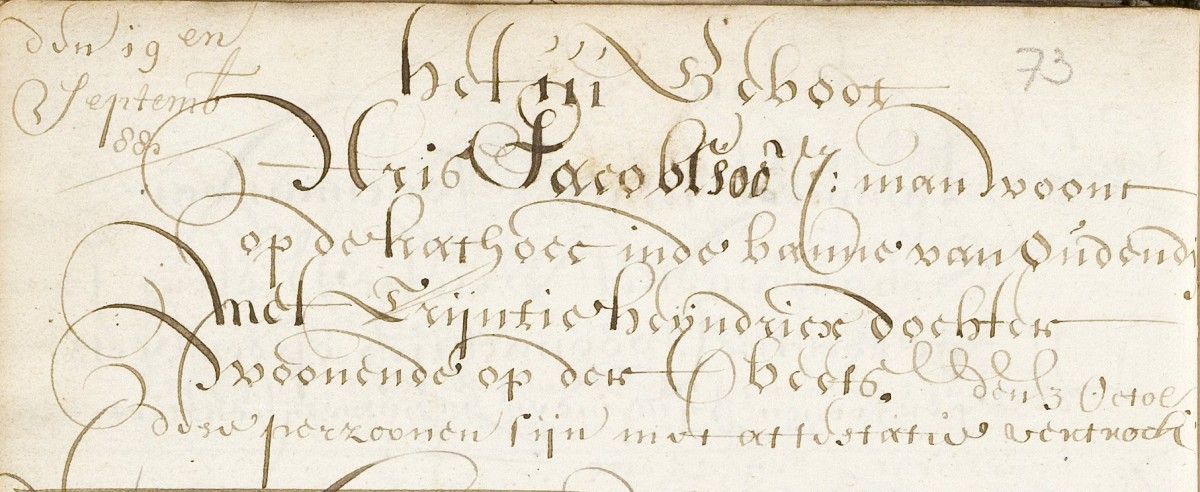 den 19 en
Septemb
88
73
het iii Gebodt
Aris Jacobssoo J: man woont
op de kathoec inde banne van Oudend
met Trijntie heyndricx dochter
woonende op der beets. den 3 Octob
dese perzoonen sijn met attestatie vertrock